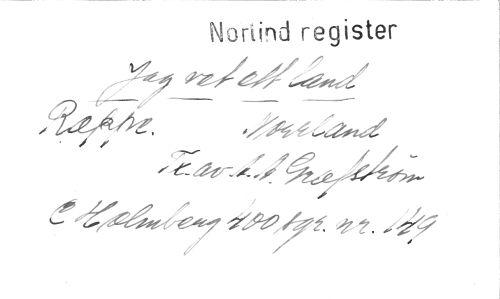 Nortind register
Jag vet ett land
Ræppe. Norrland
Tx. av A. A. Græfström
C Holmberg 400 sgr. nr. 149